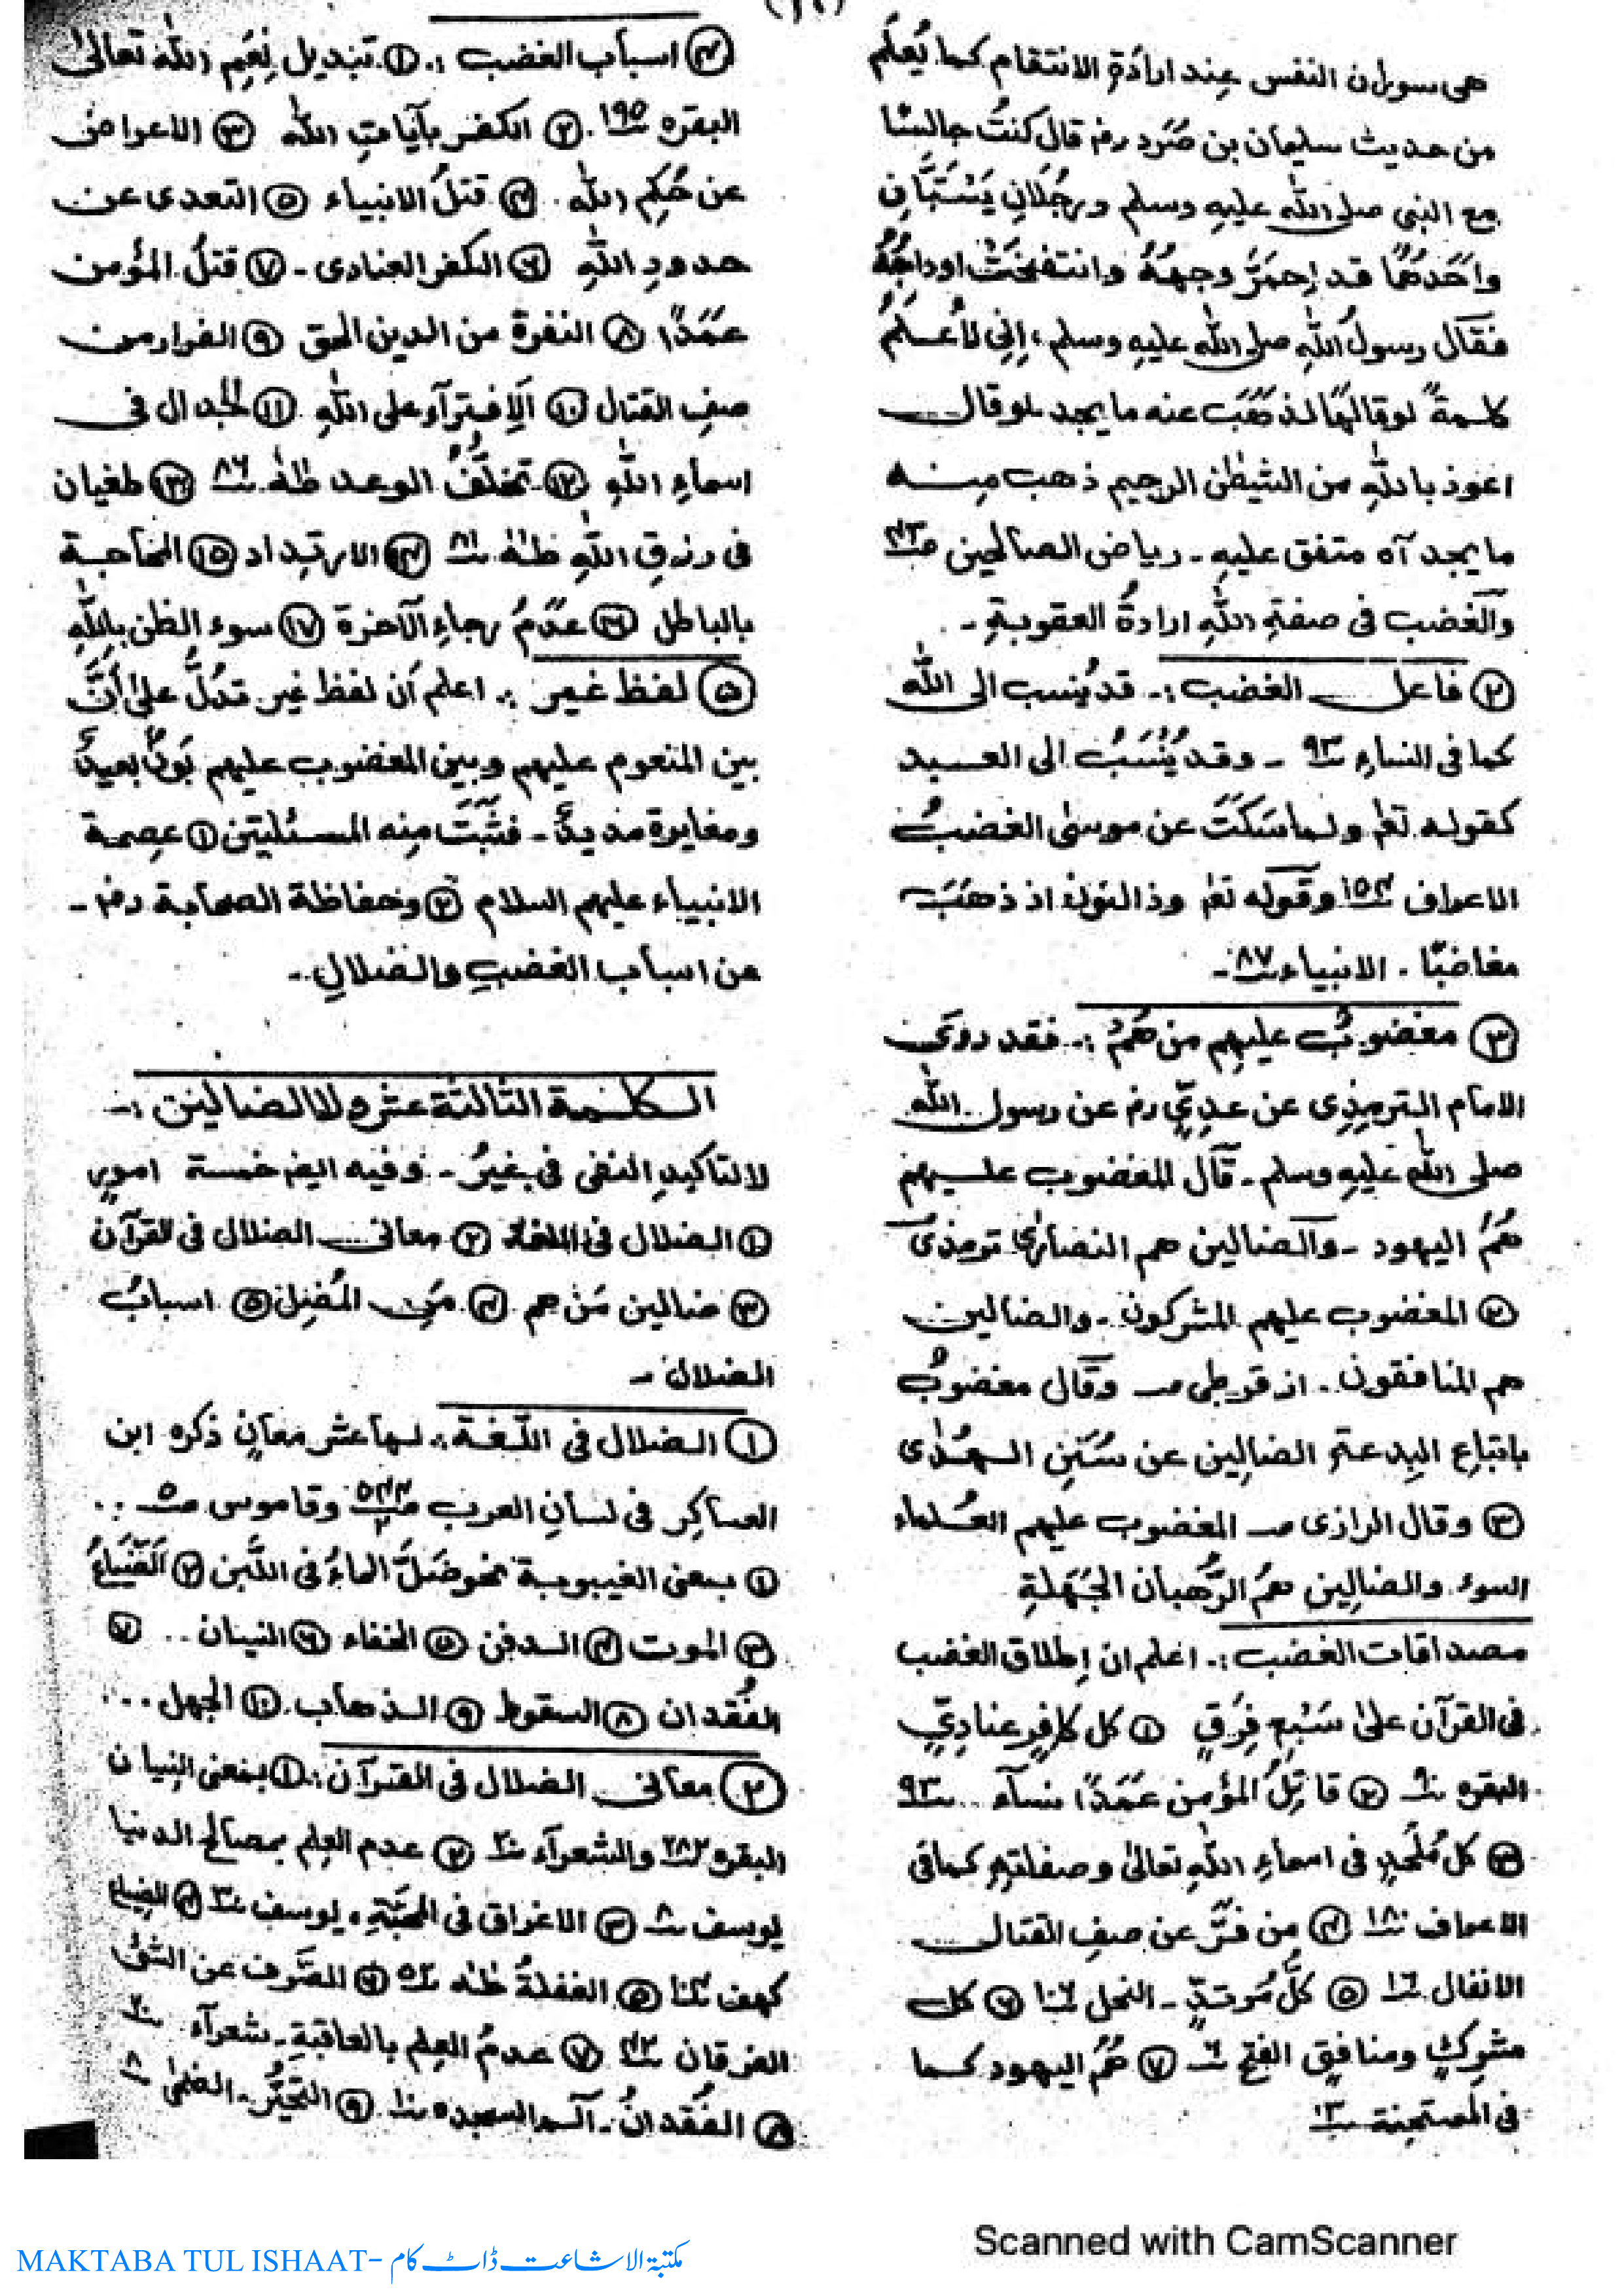 هی سوران النفس عند ارادة الانتقام کما یُعلَم
من حدیث سلیمان بن صُرَد رضہ قال کنتُ جالسًا
مع النبی صلی اللہ علیہ وسلم ورجُلَانِ یَسْتَبَّانِ
واَحَدُهُمَا قد اِحمَرَّ وجهُهُ وانتفخَتْ اوداجُهُ
فقَال رسولُ اللہِ صلی اللہ علیہ وسلم، اِنِّی لاَعْلَمُ
کلمةً لوقالهَا لذهَبَ عنه ما یجد لوقال
اعوذ باللہِ من الشیطٰن الرجیم ذهب منه
ما یجد آہ متفق علیہ ۔ ریاض الصالحین صـ۴۳
والغضب فی صفةِ اللہِ ارادةُ العقوبةِ ۔
۲ فاعل الغضب :۔ قد یُنسب الی اللہ
کما فی النساء ۹۳ ۔ وقد یُنْسَبُ الی العبد
کقوله تعٰ ولما سَکَتَ عن موسٰی الغضبُ
الاعراف ۱۵۴ وقوله تعٰ وذالنونِ اذ ذهَبَ
مغاضبًا ۔ الانبیاء ۸۷ ۔
۳ مغضوبُ علیهم من هُمْ :۔ فقد روٰی
الامام الترمِذِی عن عدِیٍّ رضہ عن رسول اللہ
صلی اللہ علیہ وسلم ۔ قال المغضوب علیهم
هُمُ الیهود ۔ والضالین هم النصارٰی ترمذی
۲ المغضوب علیهم المشرکون ۔ والضالین
هم المنافقون ۔ از قرطبی صـ وقال مغضوبُ
باتباعِ البِدعتہِ الضالِین عن سُنَنِ الهُدٰی
۳ وقال الرازی صـ المغضوب علیهم العُلماء
السوء والضالِین هُمُ الرُّهبان الجُهَلَةِ
مصداقات الغضب :۔ اعلم ان اِطلاق الغضب
فی القرآن علٰی سَبْعِ فِرَقٍ ۱ کل کافِرٍ عنادِیٍّ
البقرہ ۹۰ ۲ قاتِلُ المؤمن عَمَدًا نسآء ۹۳
۳ کل مُلْحِدٍ فی اسماءِ اللہِ تعالٰی وصفاتِهِ کما فی
الاعراف ۱۸۰ ۴ من فَرَّ عن صفِ القتال
الانفال ۱۶ ۵ کلُّ مُرتدٍّ ۔ النحل ۱۰۶ ۶ کل
مشرکٍ ومنافقٍ الفتح ۶ ۷ هُمُ الیهود کما
فی الممتحنة ۱۳
۴ اسباب الغضب :۔ ۱ تبدیل نِعَمِ اللہ تعالٰی
البقرہ ۱۹۵ ۔ ۲ الکفر بآیاتِ اللہ ۳ الاعراض
عن حُکمِ اللہ ۴ قتلُ الانبیاء ۵ التعدی عن
حدودِ اللہِ ۶ الکفر العنادی ۔ ۷ قتلُ المؤمن
عَمَدًا ۸ النفرة من الدین الحق ۹ الفرار من
صفِ القتال ۱۰ اَلِافترآء علی اللہِ ۱۱ الجدال فی
اسماءِ اللہِ ۱۲ تخلُّفُ الوعد طٰهٰ ۸۶ ۱۳ طغیان
فی رزقِ اللہِ طٰهٰ ۸۱ ۱۴ الارتداد ۱۵ المحاجة
بالباطل ۱۶ عدَمُ رجاءِ الآخرة ۱۷ سوء الظن بِاللہِ
۵ لفظ غیر :۔ اعلم اَن لفظ غیر تدُلُّ علٰی اَنَّ
بین المنعوم علیهم وبین المغضوب علیهم بَونٌ بعیدٌ
ومغایرة مدیدٌ ۔ فثَبَتَ مِنه المسئلیتن ۱ عِصمة
الانبیاء علیهم السلام ۲ وحفاظة الصحابة رضہ ۔
عن اسباب الغضبِ والضلالِ ۔
الکلمة الثالثة عشر ولا الضالین :۔
لا لتاکیدِ النفی فی غیرُ ۔ وفیه ایضہ خمسة امورٍ
۱ الضلال فی اللغة ۲ معانی الضلال فی القرآن
۳ ضالین مَنْ هم ۴ مَن المُضِل ۵ اسبابُ
الضلال ۔
۱ الضلال فی اللُّغة :۔ لها عشر معانٍ ذکرہ ابن
العساکِر فی لسانِ العرب وقاموس صـ۵ :۔
۱ بمعنی الغیبوبة نحو ضَلَّ الماءُ فی اللَّبن ۲ اَلضِّیَاعُ
۳ الموت ۴ الدفن ۵ الخفاء ۶ النیسان ۔۔ ۷
الفُقدان ۸ السقوط ۹ الذهاب ۱۰ الجهل ۔۔۔
۲ معانی الضلال فی القرآن :۔ ۱ بمعنی النِیان
البقرہ ۲۸۲ والشعرآء ۲۰ ۲ عدم العِلم بمصالح الدنیا
یوسف ۸ ۳ الاغراق فی المحبَّةِ، یوسف ۳۰ ۴ الضیاع
کهف ۱۰۴ ۵ الغفلةُ طٰهٰ ۵۲ ۶ الصَّرف عن الشیٔ
الفرقان ۴۲ ۷ عدمُ العِلم بالعاقبةِ ۔ شعرآء ۲۰
۸ الفُقدانُ ۔ آلم السجدہ ۱۰ ۹ التحَیُّر ۔ الضحٰی
Scanned with CamScanner
MAKTABA TUL ISHAAT- مکتبۃ الاشاعت ڈاٹ کام